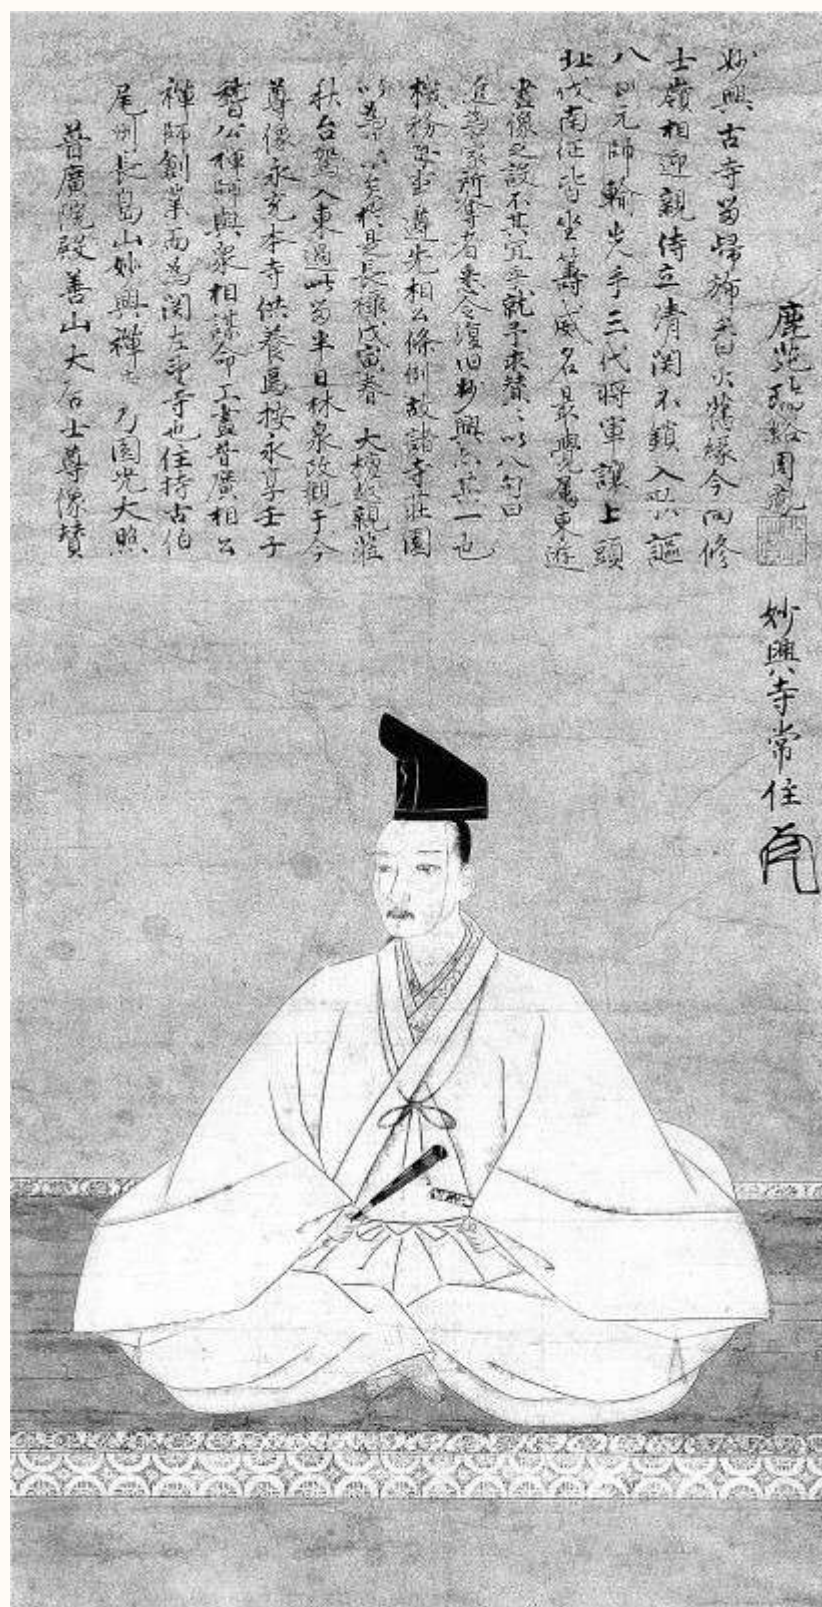 普廣院殿善山大居士尊像賛
尾州長島山妙興禅寺乃圓光大照
禅師創業而為関左望寺也住持古伯
稽公禅師與衆相謀命工畫普廣相公
尊像永充本寺供養焉按永享壬子
秋台駕入東過此留半日林泉改観于今
以為 是長禄戊寅春 大檀越親莅
機務 遵先相公條例故諸寺荘園
近為豪所奪者悉令復旧妙興亦其一也
畫像之設不其宜乎就予求賛々以八句曰
北伐南征皆坐籌威名最 属東遊
八州元帥輸先手三代将軍譲上頭
士嶺相迎親侍立清関不鎖入 謳
妙興古寺留帰旆香火舊縁今尚修
鹿苑瑞谿周鳳
妙興寺常住